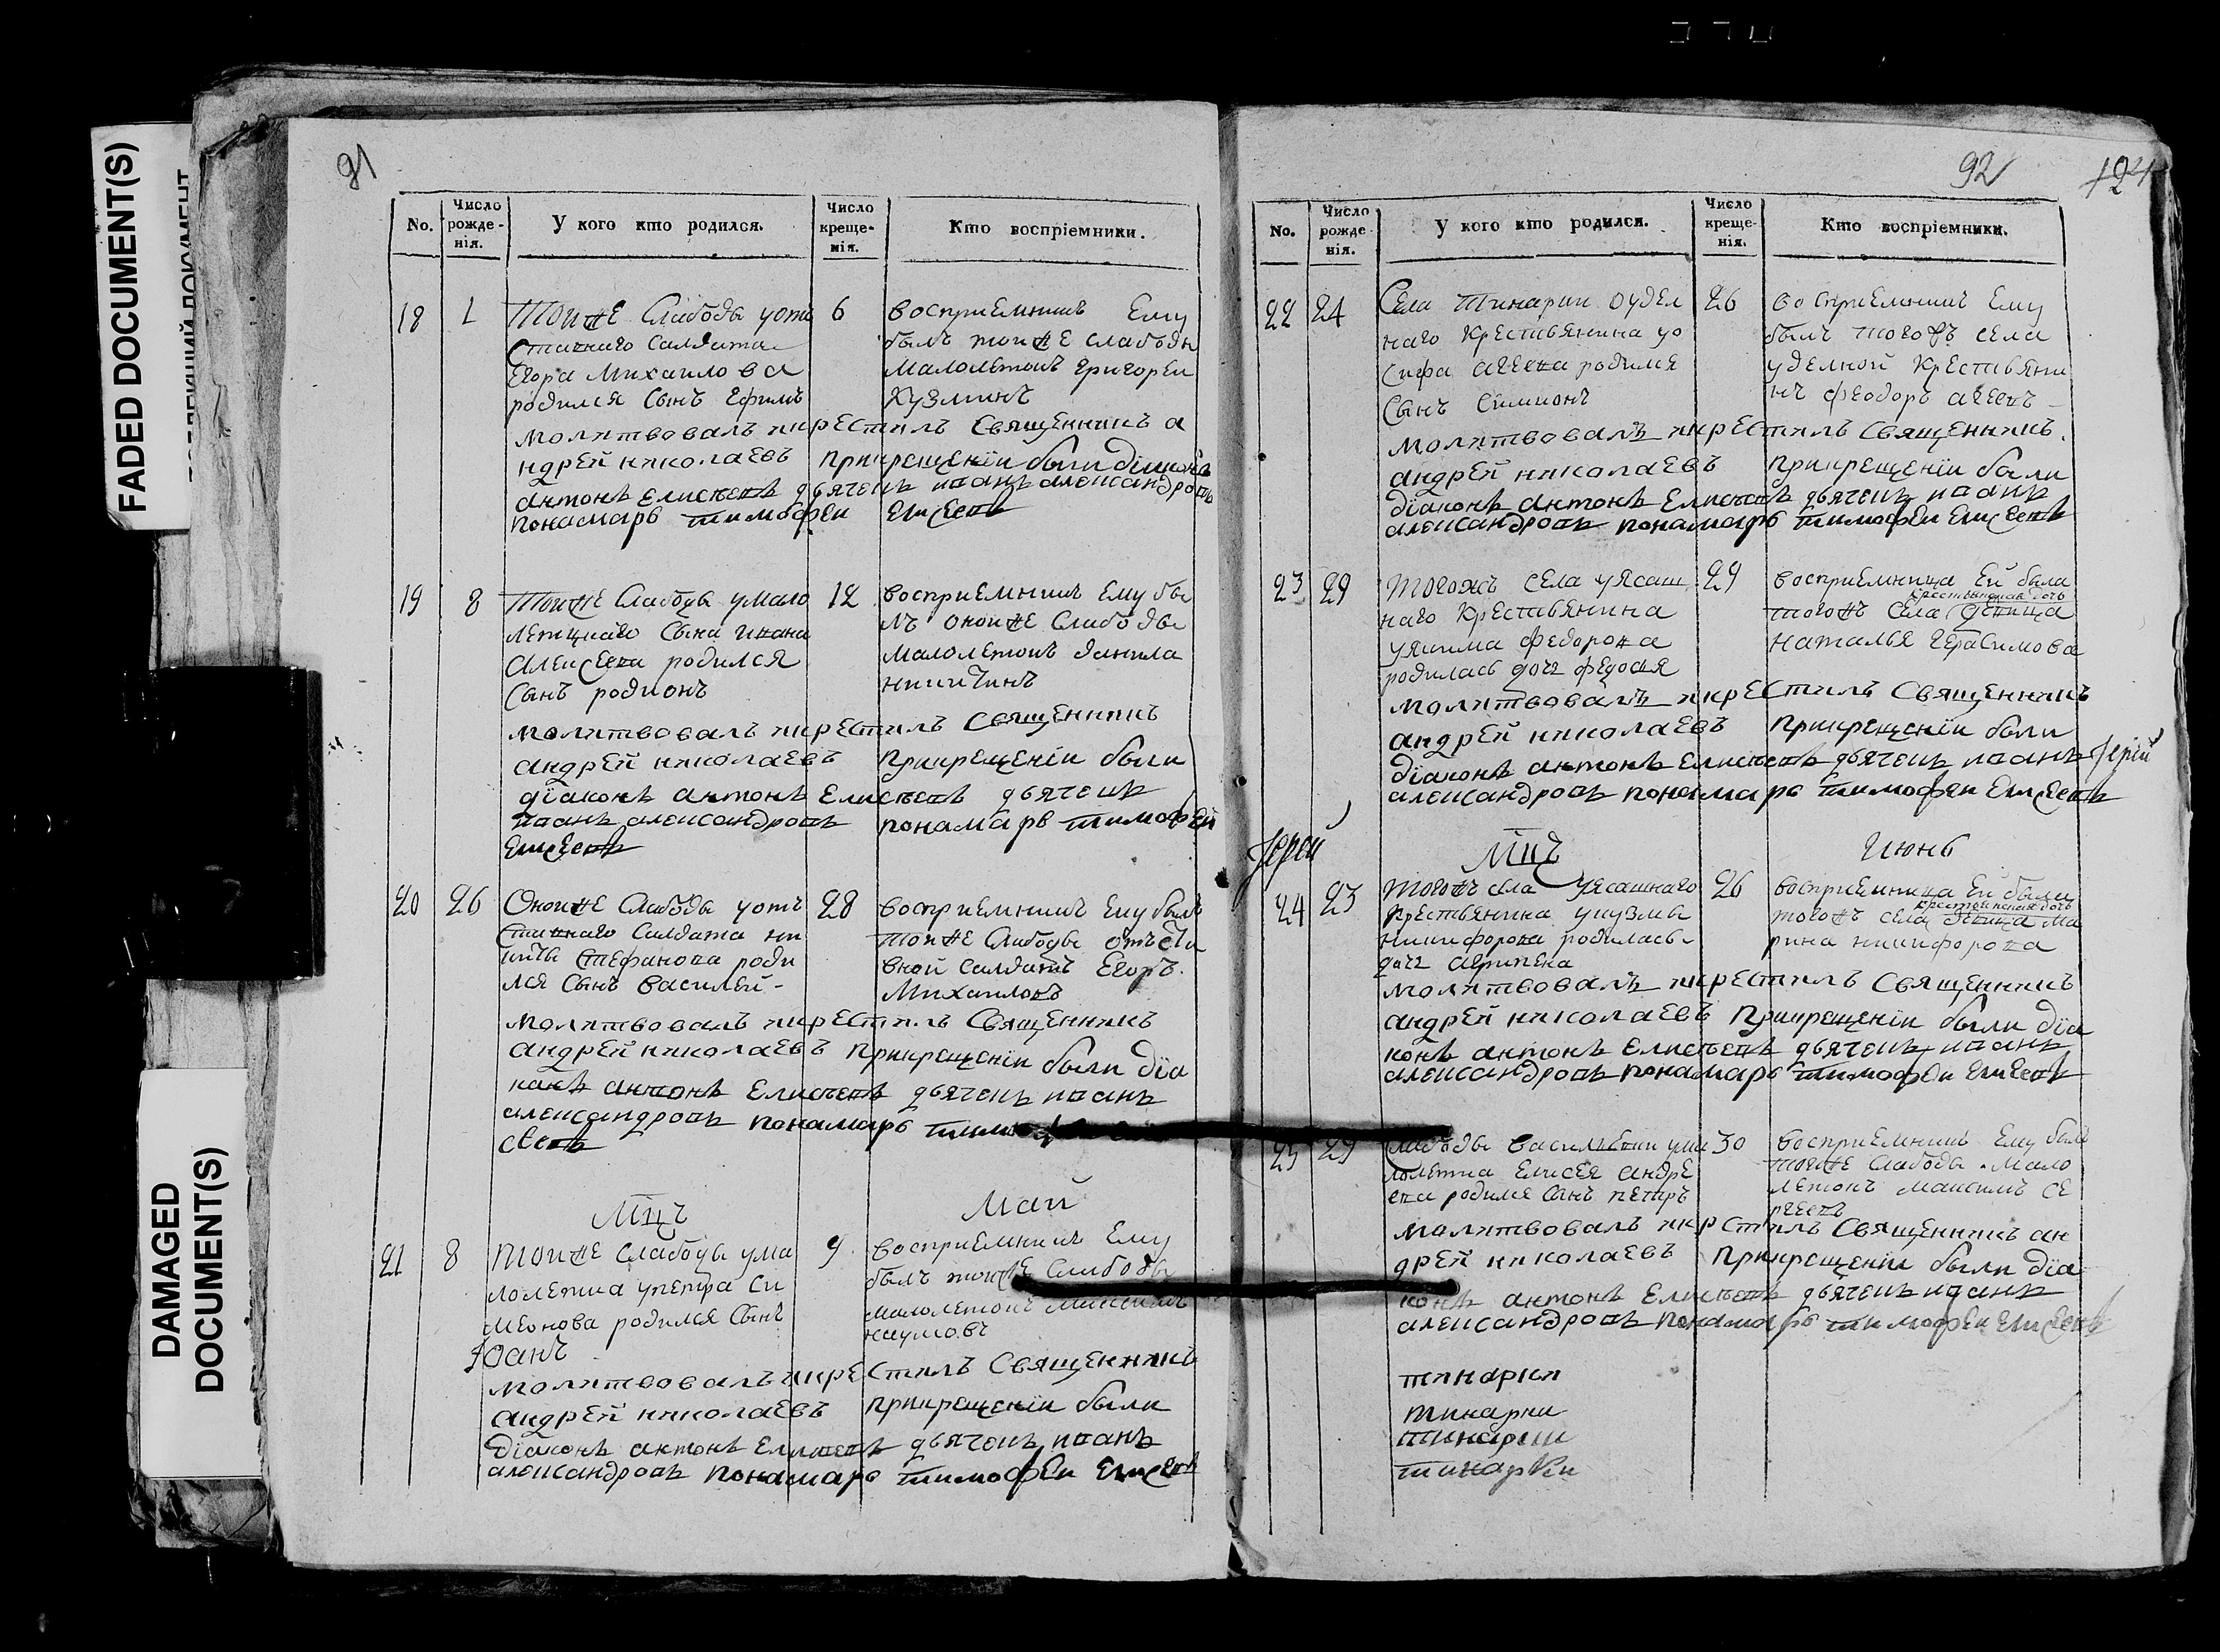 FADED DOCUMENT(S)
DAMAGED
DOCUMENT(S)
91
No.
Число
рожде-
нія.
У кого кто родился.
Число
креще-
нія.
Кто воспріемники.
18
1
6
Тойже Слабоды уот
ставнаго Салдата
Егора Михаилова
родился Сынъ Ефимъ
восприемникъ Ему
былъ тойже слабоды
малолетокъ Григореи
Кузминъ
молитвовалъ икрестилъ Священникъ а
ндрей николаевъ прикрещенїи были дїаконъ
антонъ Елисѣевъ дьячекъ иванъ александровъ
понамарь тимофеи Елисеевъ
19
8
12
Тойже Слабоды умало
летцкаго Сына ивана
Алексеева родился
Сынъ родионъ
восприемникъ Ему бы
лъ оноиже Слабоды
малолетокъ данила
никитинъ
молитвовалъ икрестилъ Священникъ
андрей николаевъ прикрещенїи были
дїаконъ антонъ Елисѣевъ дьячекъ
иванъ александровъ понамарь тимофей
Елисеевъ
20
26
28
Оноиже Слабоды уотъ
ставнаго Салдата ни
киты Стефанова роди
лся Сынъ Василей-
восприемникъ Ему былъ
тойже Слабоды отъста
вной Салдатъ Егоръ
Михаиловъ
молитвовалъ икрестилъ Священникъ
андрей николаевъ прикрещенїи были дїа
конъ антонъ Елисѣевъ дьячекъ иванъ
александровъ понамарь
сеевъ
Мцъ
Май
21
8
9
Тойже слабоды ума
лолетка упетра Си
меонова родился Сынъ
Іоанъ
восприемникъ Ему
былъ тойже Слабоды
малолетокъ Максимъ
наумовъ
молитвовалъ икрестилъ Священникъ
андрей николаевъ прикрещенїи были
дїаконъ антонъ Елисѣевъ дьячекъ иванъ
александровъ понамарь тимофеи Елисеевъ
92
124
No.
Число
рожде
нія.
У кого кто родился.
Число
креще-
нія.
Кто воспріемники.
22
24
26
Села Тинарки оудел
наго Крестьянина уо
сифа агеева родился
Сынъ Симионъ
восприемникъ Ему
былъ тогожъ села
уделной Крестьяни
нъ феодоръ агеевъ
молитвовалъ икрестилъ Священникъ
андрей николаевъ прикрещенїи были
дїаконъ антонъ Елисѣевъ дьячекъ иванъ
александровъ понамарь тимофеи Елисеевъ
23
29
29
Тогожъ села уясаш
наго Крестьянина
уякима федорова
родилась дочь федосья
восприемница Ей была
крестьянская дочь
тогожъ Села девица
Наталья герасимова
молитвовалъ икрестилъ Священникъ
андрей николаевъ прикрещенїи были
дїаконъ антонъ Елисѣевъ дьячекъ иванъ
Іерей
александровъ понамарь тимофеи Елисеевъ
Іерей
Мцъ
Июнь
24
23
26
Тогожъ села уясашнаго
Крестьянина укузмы
Никифорова родилась
дочь агрипена
восприемница Ей была
крестьянская дочь
тогожъ села девица ма
рина никифорова
молитвовалъ икрестилъ Священникъ
андрей николаевъ прикрещенїи были дїа
конъ антонъ Елисѣевъ дьячекъ иванъ
александровъ понамарь тимофеи Елисеевъ
25
29
30
Слабоды Василѣвки ума
лолетка Елисея андре
ева родился Сынъ петръ
восприемникъ Ему былъ
тогоже Слабоды мало
летокъ Максимъ се
ргеевъ
молитвовалъ икрстилъ Священникъ ан
дрей николаевъ прикрещенїи были дїа
конъ антонъ Елисѣевъ дьячекъ иванъ
александровъ понамарь тимофеи Елисеевъ
тинарки
тинарки
тинарки
тинарки